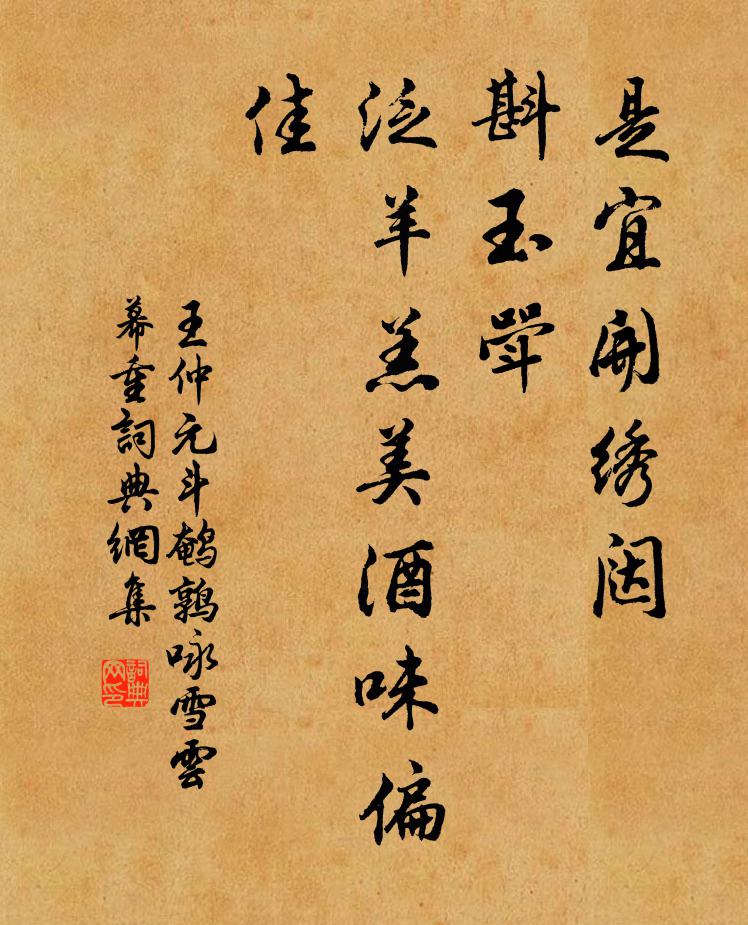 是宜開綉闼
斟玉斝
泛羊羔美酒味偏
佳
王仲元斗鵪鶉咏雪雲
幕重詞典網集
詞典
网印